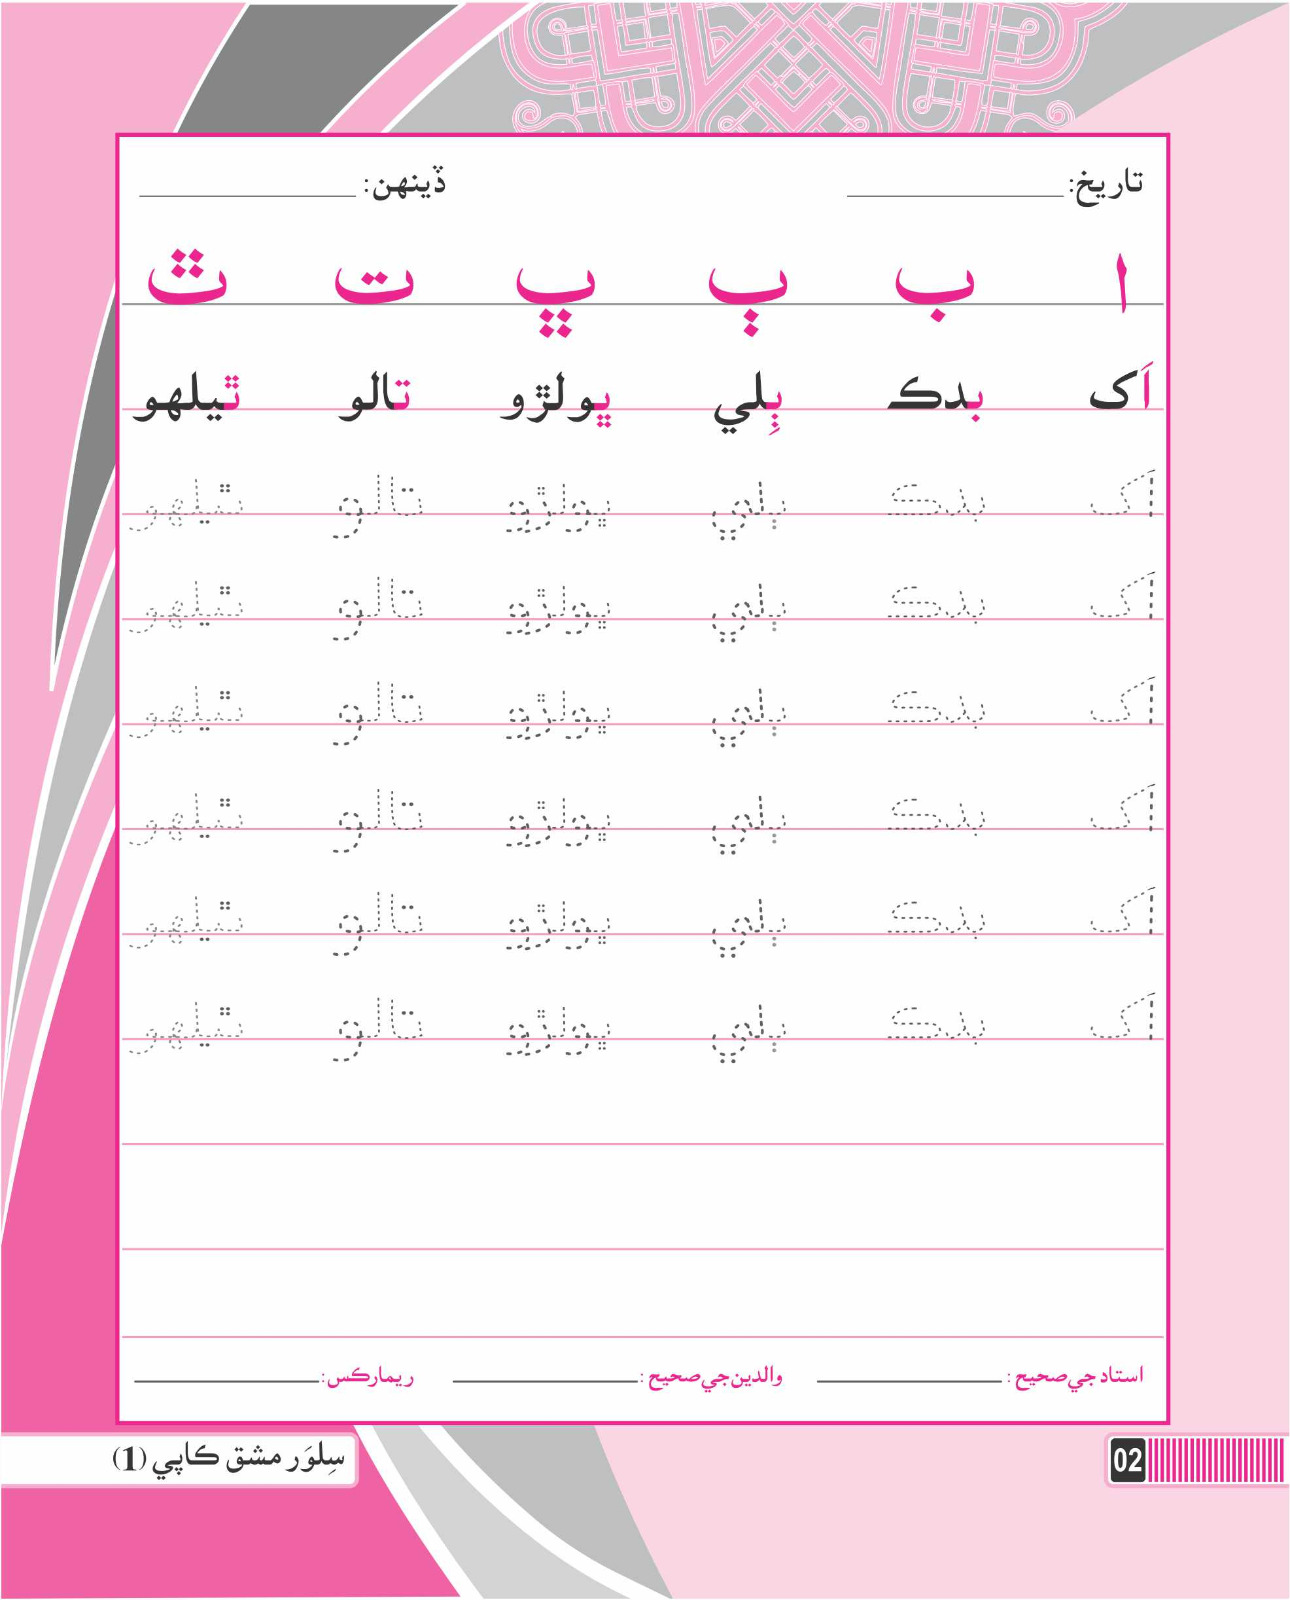 تاريخ: ڏينهن:
ا ب ٻ ڀ ت ٿ
اَک بدڪ ٻِلي ڀولڙو تالو ٿيلهو
اک بدڪ ٻلي ڀولڙو تالو ٿيلهو
اک بدڪ ٻلي ڀولڙو تالو ٿيلهو
اک بدڪ ٻلي ڀولڙو تالو ٿيلهو
اک بدڪ ٻلي ڀولڙو تالو ٿيلهو
اک بدڪ ٻلي ڀولڙو تالو ٿيلهو
اک بدڪ ٻلي ڀولڙو تالو ٿيلهو
استاد جي صحيح : والدين جي صحيح : ريمارڪس:
02 سِلوَر مشق ڪاپي (1)